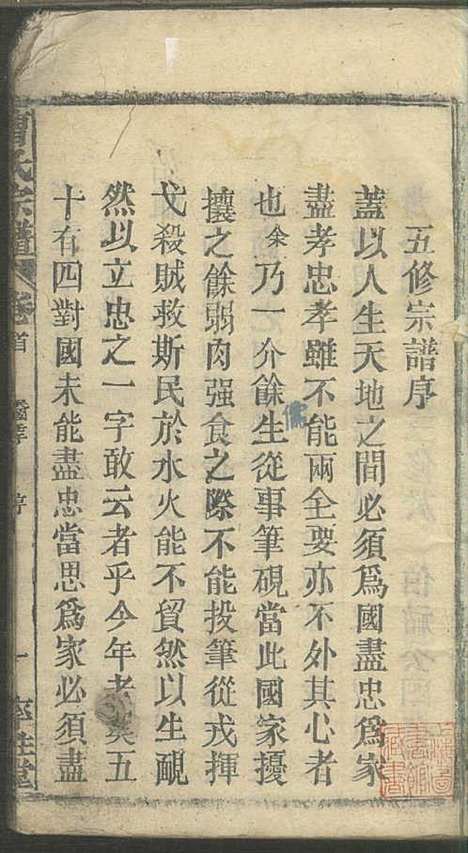 五修宗譜序
蓋以人生天地之間必須爲國盡忠爲家
盡孝忠孝雖不能兩全要亦不外其心者
也余乃一介餘生從事筆硯當此國家擾
儒
攘之餘弱肉强食之際不能投筆從戎揮
戈殺賊救斯民於水火能不貿然以生靦
然以立忠之一字敢云者乎今年老矣五
十有四對國未能盡忠當思爲家必須盡
氏宗譜 卷首 序 一